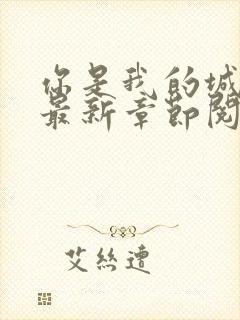 你是我的城
最新章節閱
艾絲遭